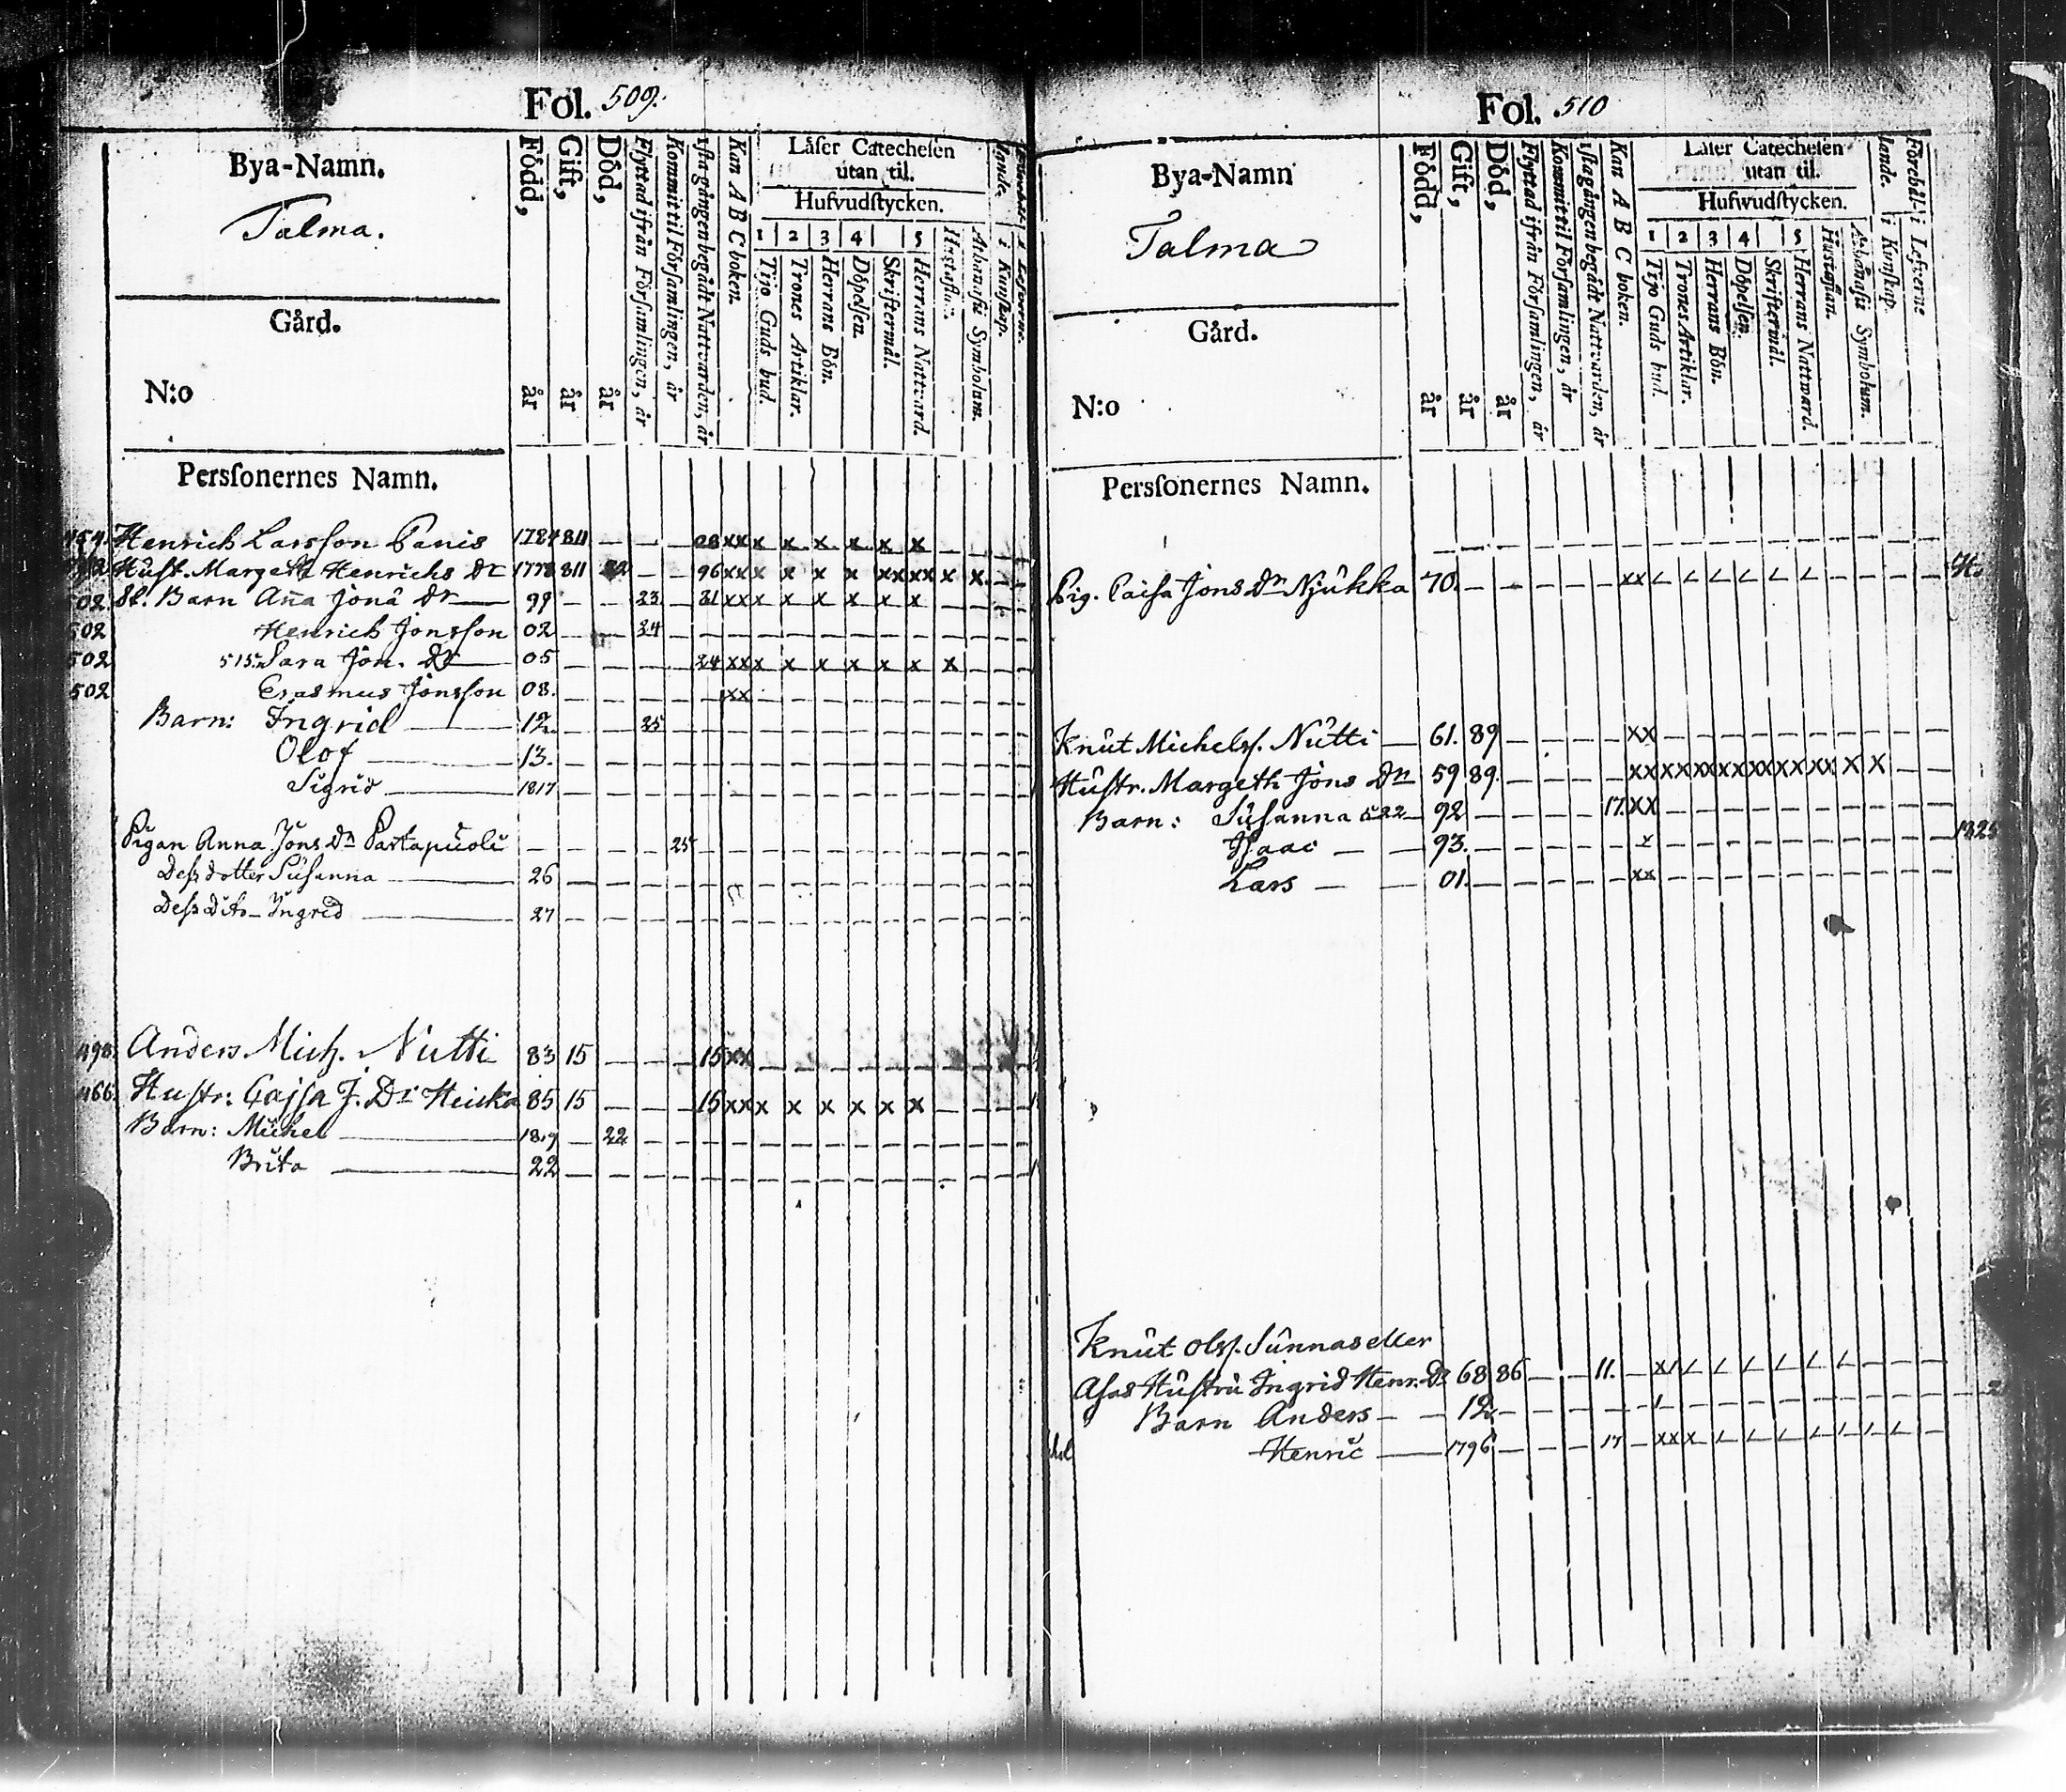 Fol. 509.
Bya-Namn.
Talma.
Gård.
N:o
Persſonernes Namn.
Född, år
Gift, år
Död, år
Flyttad ifrån Förſamlingen, år
Kommit til Förſamlingen, år
iſta gången begådt Nattvarden, år
Kan A B C boken.
Läſer Catecheſen
utan til.
Hufvudſtycken.
1 2 3 4 5
Tijo Guds bud.
Trones Artiklar.
Herrans Bön.
Döpelſen.
Skriftermål.
Herrans Nattvard.
Athanaſii Symbolum.
i Kunſkap.
Henrich Larsſon Panis 1784 811 — — — 08 xx x x x x x x —
Huſt. Margeth Henrichs Dr 1778 811 22 — — 96 xx x x x x xx xx x x — —
502 Sl. Barn Aña Jonæ Dr — 99 — — 23 — 21 xx x x x x x x
502 Henrich Jonsſon 02 — — 24 — — — — — — — — —
502 515. Sara Jon. Dr — 05 — — — — 24 xx x x x x x x x
502 Erasmus Jönsſon 08. — — — — — xx — — — — — —
Barn: Ingrid — 12 — — 25 — — — — — — — —
Olof — 13. — — — — — — — — — —
Sigrid — 1817 — — — — — — — — — —
Pigan Anna Jöns Dr Partapuoli — — — — 25 — — — — — —
Deſs dotter Suſanna — 26 — — — — — — — — — —
Deſs Dito — Ingrid — 27 — — — — — — — — — —
498. Anders Mich. Nutti 83 15 — — — 15 xx — — — — — —
466. Huſtr: Cajſa J. Dr Heicka 85 15 — — — 15 xx x x x x x x —
Barn: Michel — 1819 — 22 — — — — — — — — —
Brita — 22 — — — — — — — — — —
Fol. 510
Bya-Namn
Talma
Gård.
N:o
Persſonernes Namn.
Född, år
Gift, år
Död, år
Flyttad ifrån Förſamlingen, år
Kommit til Förſamlingen, år
iſta gången begådt Nattvarden, år
Kan A B C boken.
Läſer Catecheſen
utan til.
Hufwudſtycken.
1 2 3 4 5
Tijo Guds bud.
Trones Artiklar.
Herrans Bön.
Döpelſen.
Skriftermål.
Herrans Nattward.
Husſtaflan.
Athanaſii Symbolum.
i Kunſkap.
i Lefverne
Pig. Caiſa Jons Dr Njukka 70. — — — — xx
Knut Michelsſ. Nutti — 61. 89 — — — — xx — — — — — —
Huſtr. Margeth Jöns Dr 59 89. — — — — xx xx xx xx xx xx xx x x — —
Barn: Suſanna 522 — 92 — — — — 17. xx — — — — — —
Iſaac — — 93. — — — — — — — — — — 1825
Lars — — 01. — — — — xx — — — — — —
Knut Olsſ. Sunnas eller
Aſas Huſtru Ingrid Henr. Dr 68 86 — — 11. —
Barn Anders — — 12 — — — — — — — — —
Henric — 1796 — — — 17 — xx x